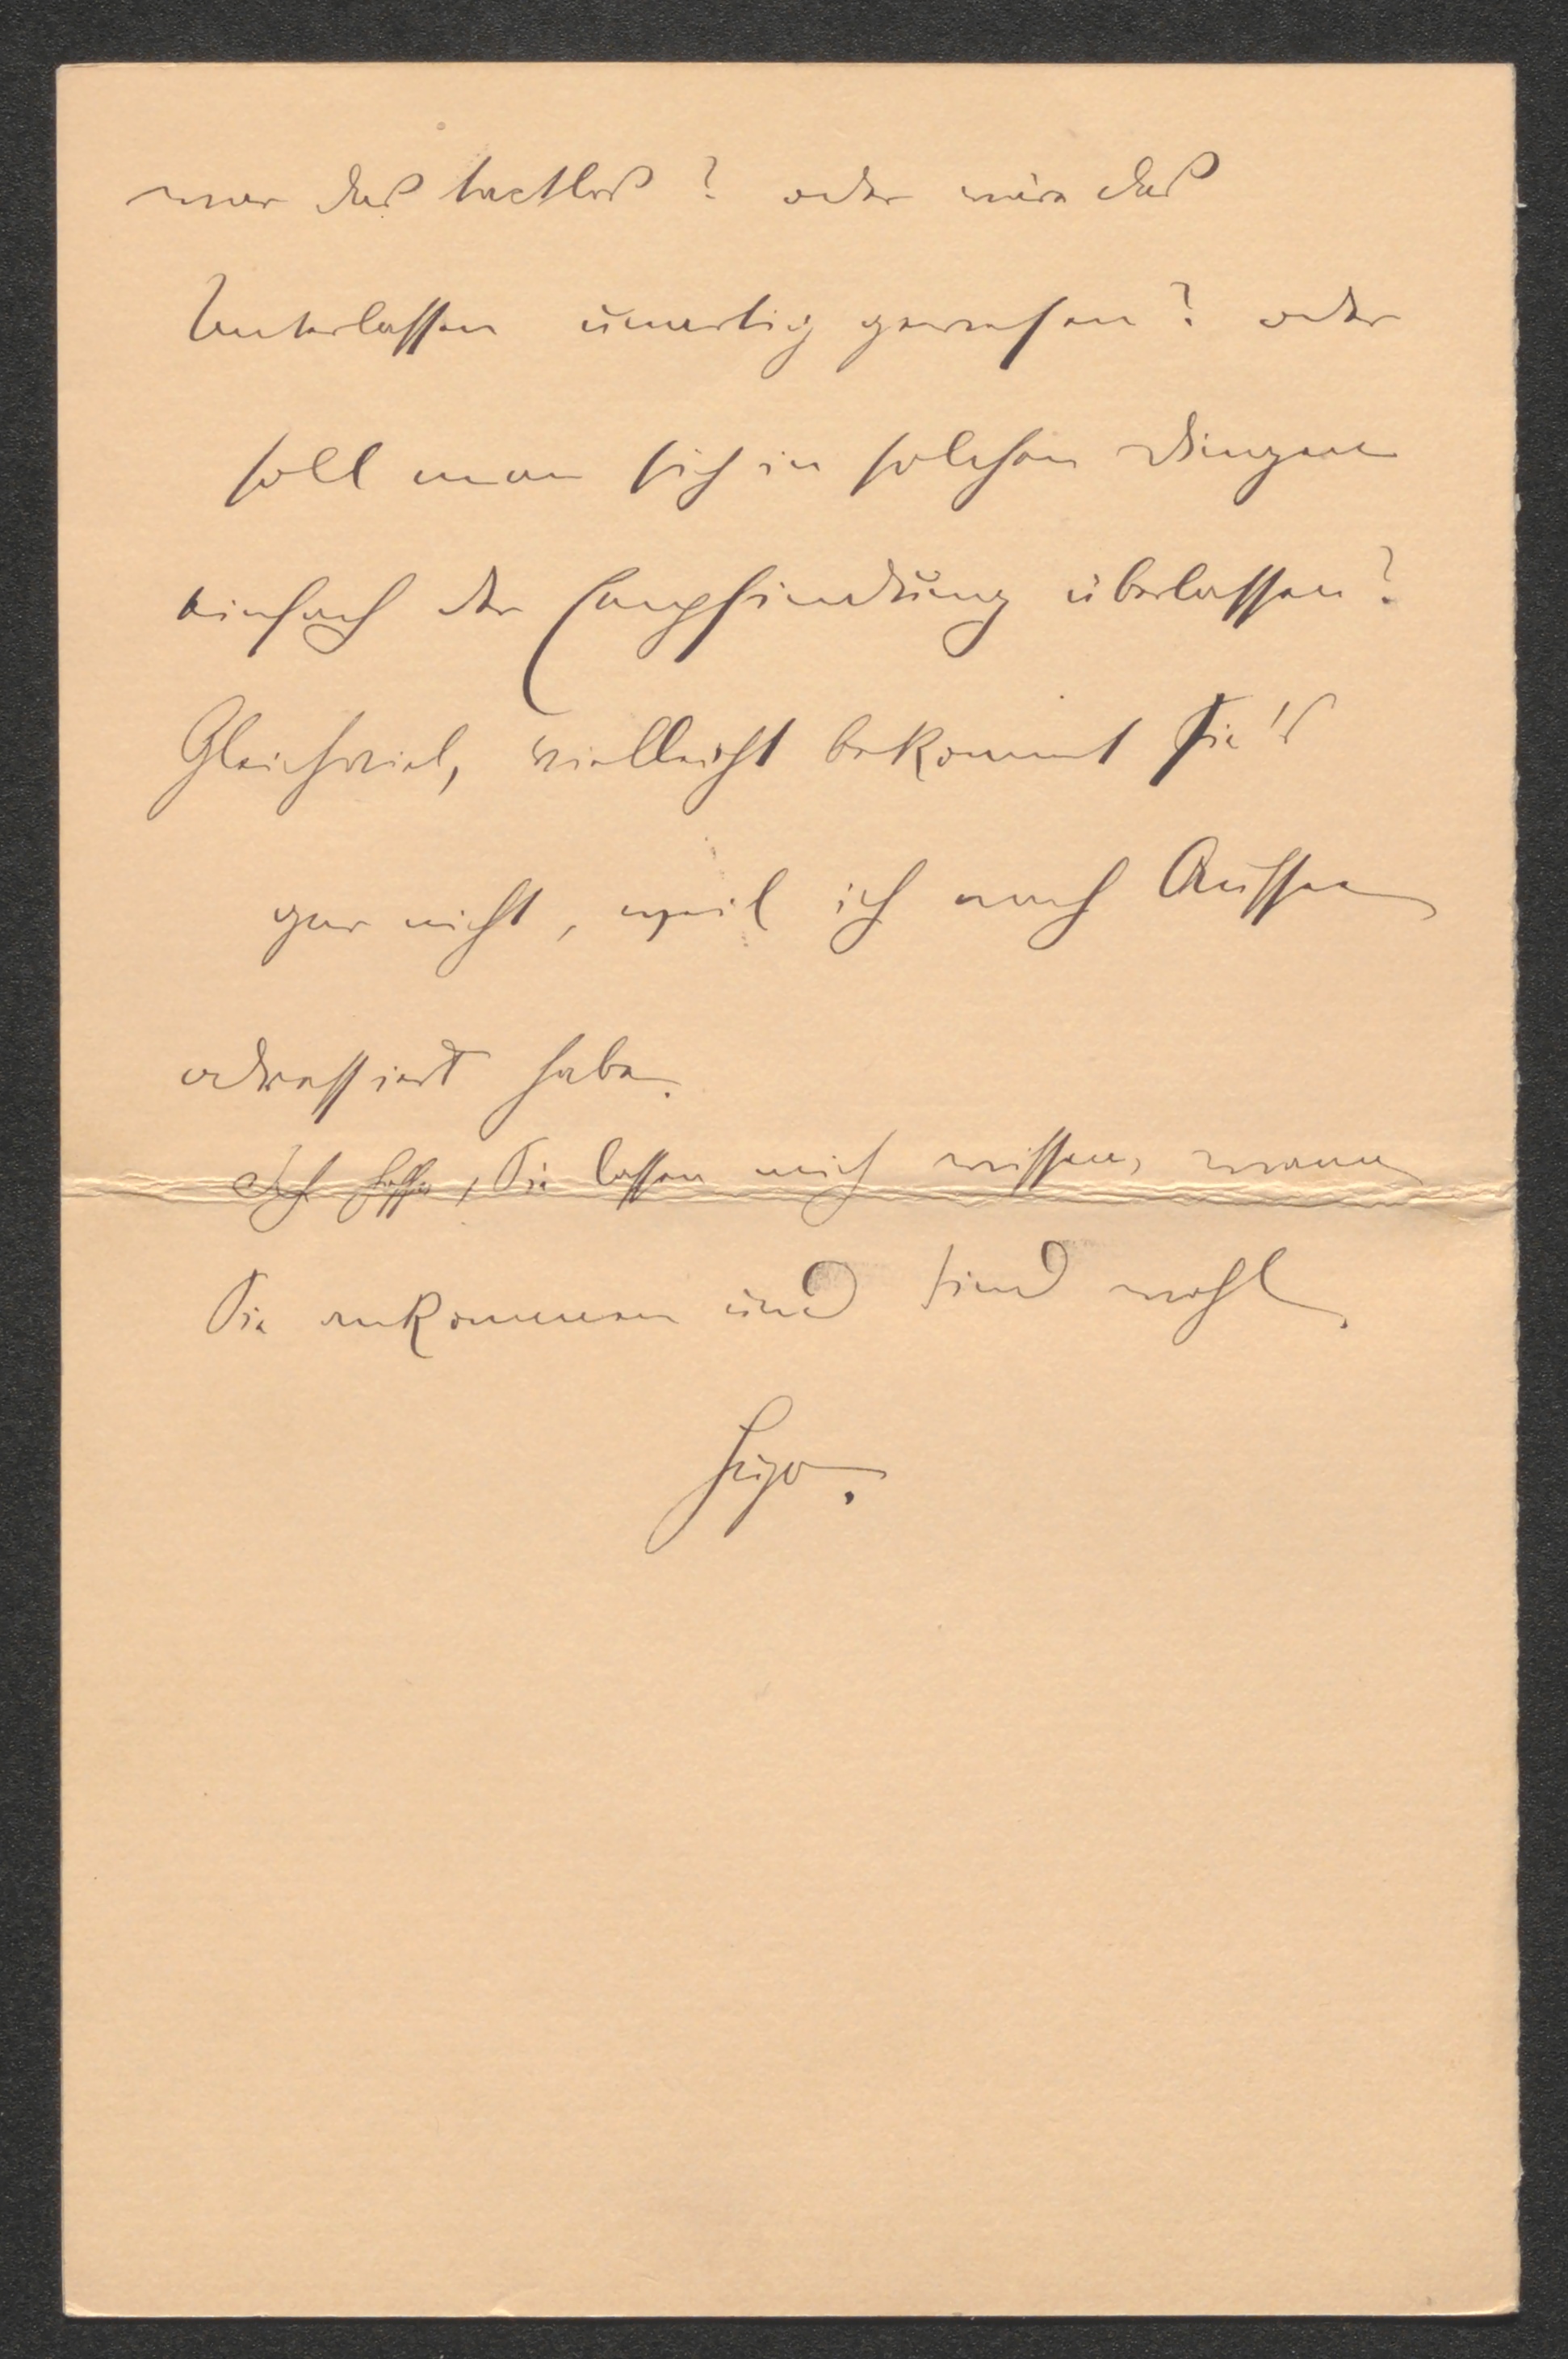 war das tactlos? oder wäre das
Unterlassen unartig gewesen? oder
soll man sich in solchen Dingen
einfach der Empfindung überlassen?
Gleichviel, vielleicht bekommt sie's
gar nicht, weil ich nach Aussee
adressiert habe.
Ich hoffe, Sie lassen mich wissen, wann
Sie ankommen und sind wohl.
Hugo.